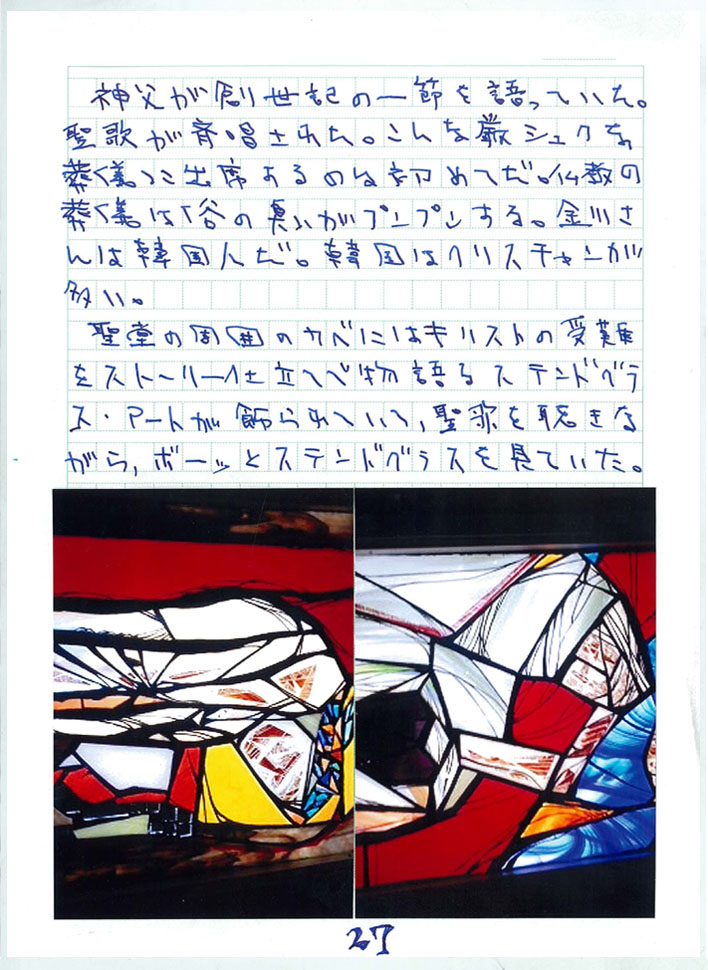 神父が創世記の一節を語っていた。
聖歌が斉唱された。こんな厳シュクな
葬儀に出席するのは初めてだ。仏教の
葬儀は俗の臭いがプンプンする。金川さ
んは韓国人だ。韓国はクリスチャンが
多い。
聖堂の周囲のカベにはキリストの受難
をストーリー仕立てで物語るステンドグラ
ス・アートが飾られていて,聖歌を聴きな
がら,ボーッとステンドグラスを見ていた。
27